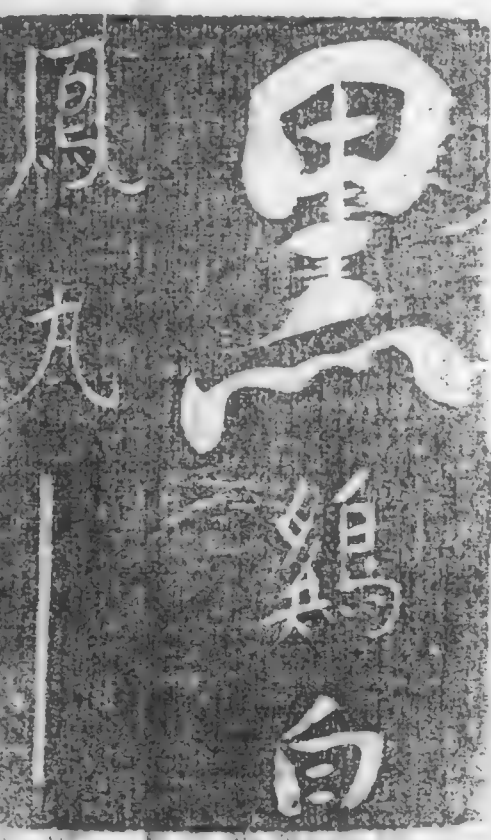 黑鷄白
鳳丸